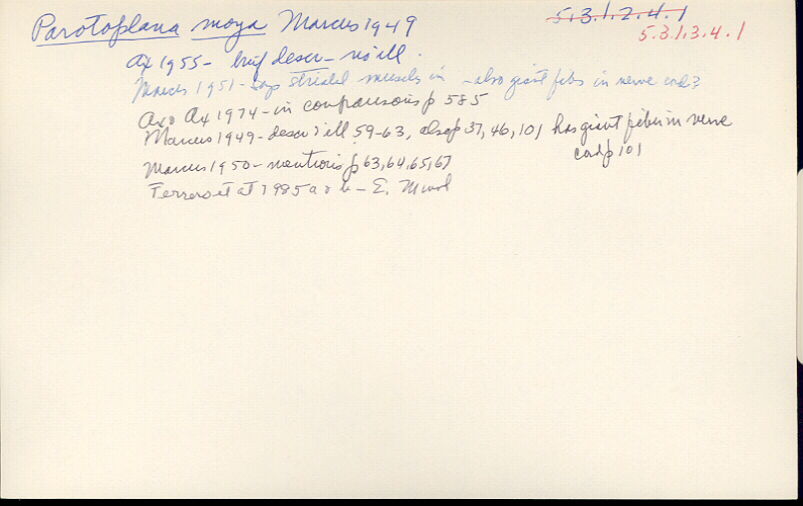 Parotoplana moya Marcus 1949 5.3.1.2.4.1
5.3.1.3.4.1
Ax 1955 - brief descr - no ill.
Marcus 1951 - says striated muscles in - also giant fibs in nerve cord?
Ax & Ax 1974 - in comparisons p 585
Marcus 1949 - descr & ill 59-63, also p 37, 46, 101 has giant fiber in nerve
cord p 101
Marcus 1950 - mentions p 63, 64, 65, 67
Ferrero et al 1985 a & b - E. Micr